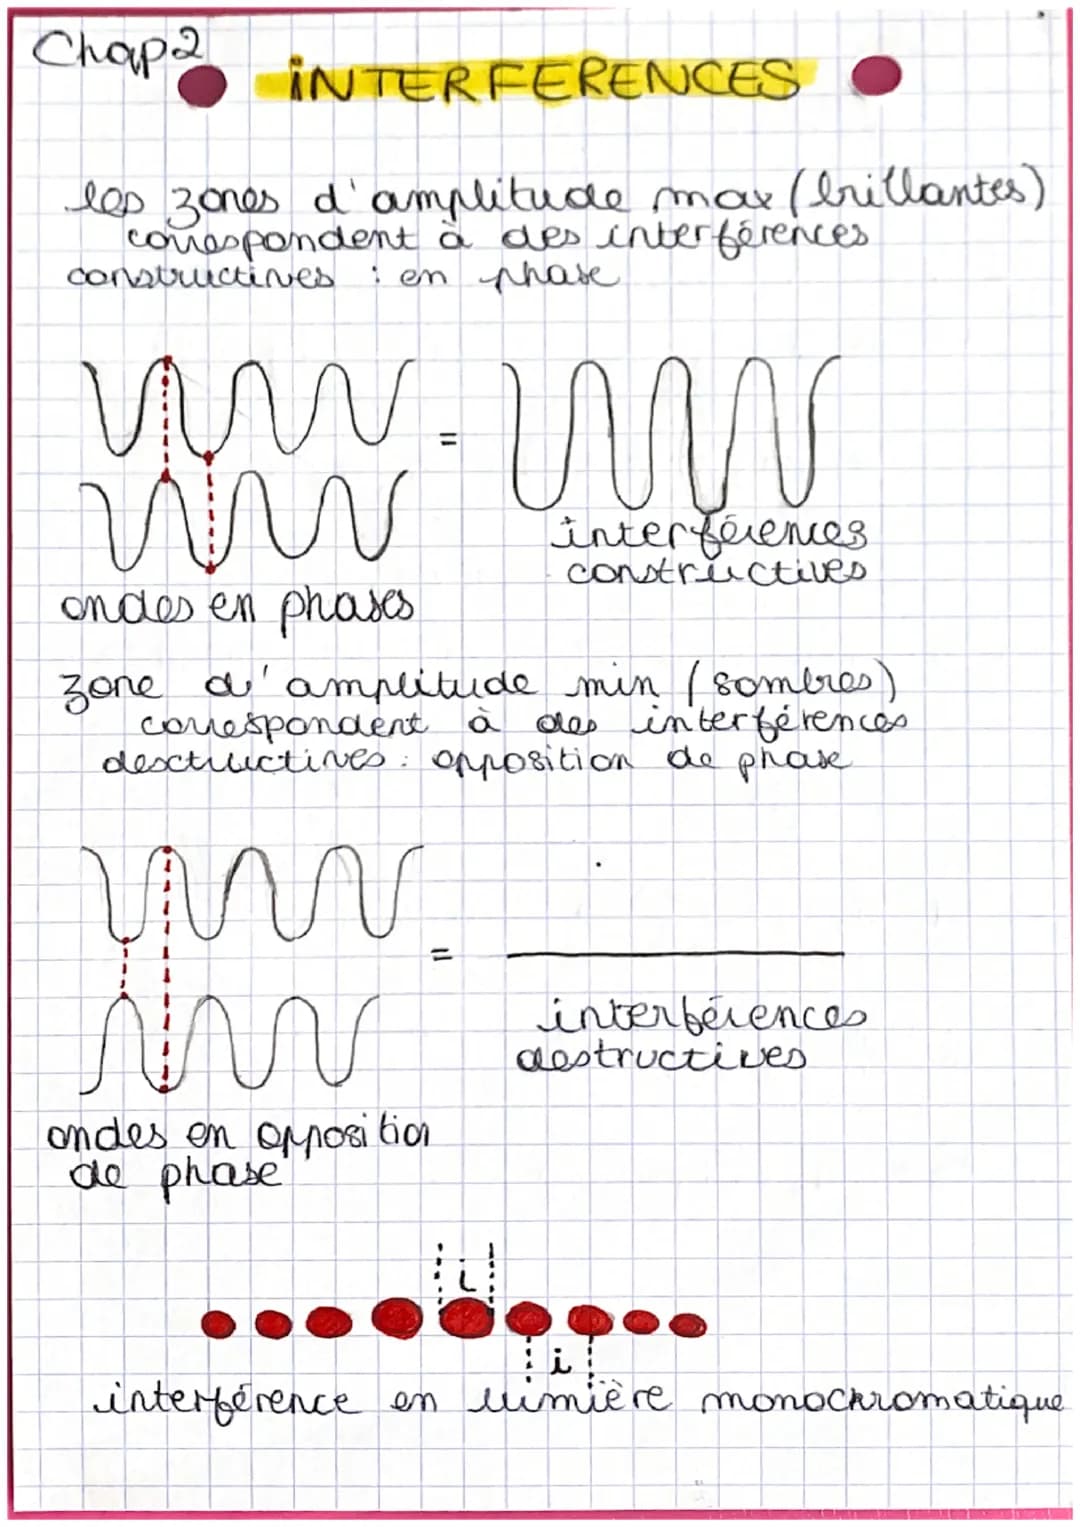 Chap2
INTERFERENCES
les zones d'amplitude max (brillantes)
correspondent à des interférences
constructives : en phase
=
interférences
constructives
ondes en phases
zone d'amplitude min (sombres)
correspondent à des interférences
desctructives : opposition de phase
=
interférences
destructives
ondes en opposition
de phase
i
i
interférence en lumière monochromatique